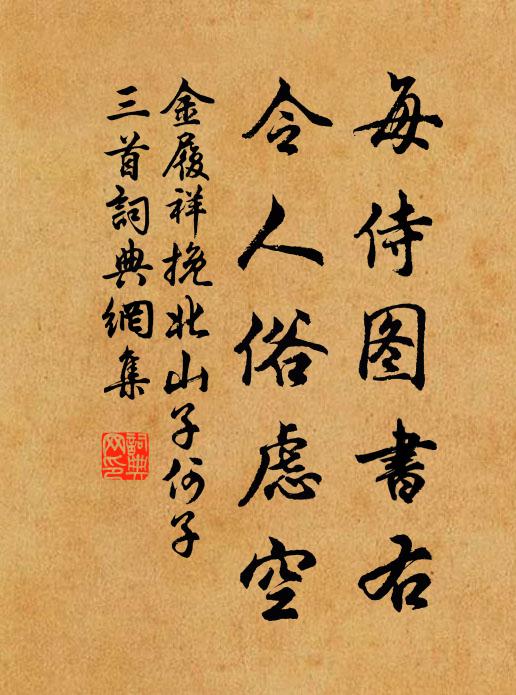 每侍图書右
令人俗慮空
金履祥挽北山子何子
三首詞典網集
詞典网印